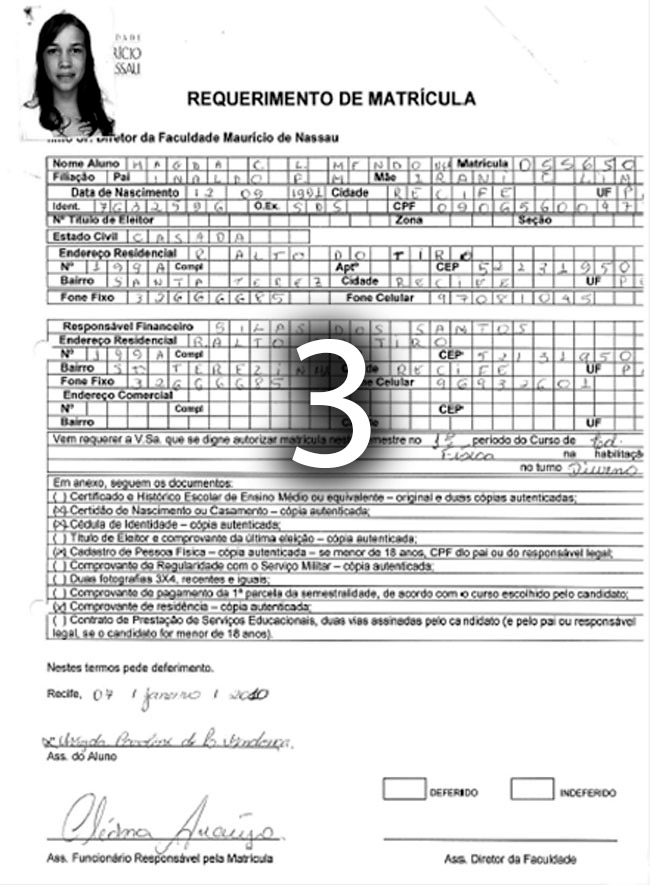 DADE
RÍCIO
SSAU
REQUERIMENTO DE MATRÍCULA
Diretor da Faculdade Maurício de Nassau
Nome Aluno MAGDA C. L. MENDO Matrícula 055650
Filiação Pai INALDO F M Mãe IRANI F LIM
Data de Nascimento 12 09 1991 Cidade RECIFE UF P
Ident. 7632596 O.Ex. SDS CPF 0906560097
Nº Título de Eleitor Zona Seção
Estado Civil CASADA
Endereço Residencial R ALTO DO TIRO
Nº 199A Compl Aptº CEP 52231950
Bairro SANTA TEREZ Cidade RECIFE UF P
Fone Fixo 32666685 Fone Celular 97081045
Responsável Financeiro SILAS DOS SANTOS
Endereço Residencial R ALTO TIRO
Nº 199A Compl CEP 52131950
Bairro ST TEREZINHA RECIFE UF P
Fone Fixo 32666685 Celular 96932601
Endereço Comercial
Nº Compl CEP
Bairro UF
3
Vem requerer a V.Sa. que se digne autorizar matrícula semestre no 1º período do Curso de Ed.
Física na habilitaçã
no turno Diurno
Em anexo, seguem os documentos:
( ) Certificado e Histórico Escolar de Ensino Médio ou equivalente – original e duas cópias autenticadas;
(x) Certidão de Nascimento ou Casamento – cópia autenticada;
(x) Cédula de Identidade – cópia autenticada;
( ) Título de Eleitor e comprovante da última eleição – cópia autenticada;
(x) Cadastro de Pessoa Física – cópia autenticada – se menor de 18 anos, CPF do pai ou do responsável legal;
( ) Comprovante de Regularidade com o Serviço Militar – cópia autenticada;
( ) Duas fotografias 3X4, recentes e iguais;
( ) Comprovante de pagamento da 1ª parcela da semestralidade, de acordo com o curso escolhido pelo candidato;
(x) Comprovante de residência – cópia autenticada;
( ) Contrato de Prestação de Serviços Educacionais, duas vias assinadas pelo candidato (e pelo pai ou responsável
legal, se o candidato for menor de 18 anos).
Nestes termos pede deferimento.
Recife, 07 / janeiro / 2010
x Magda de L. Mendonça
Ass. do Aluno
DEFERIDO INDEFERIDO
Cléoma Araújo
Ass. Funcionário Responsável pela Matrícula Ass. Diretor da Faculdade